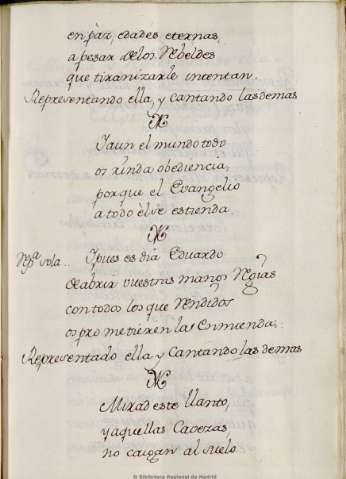 en pàz, edades eternas
apesar delos Rebeldes
que tiranizarle intentan.
Representando ella, y Cantando las demas
Yaun el mundo todo
os rinda obediencia,
porque el Evangelio
a todo èl se estienda.
Repª. sola.. Ypues es dia Eduardo
de abrir vuestras manos Regias
con todos los que Rendidos
os prometieren la Enmienda;
Representado ella y Cantando las demas
Mirad este llanto,
y aquellas Cavezas
no caigan al suelo
© Biblioteca Regional de Madrid